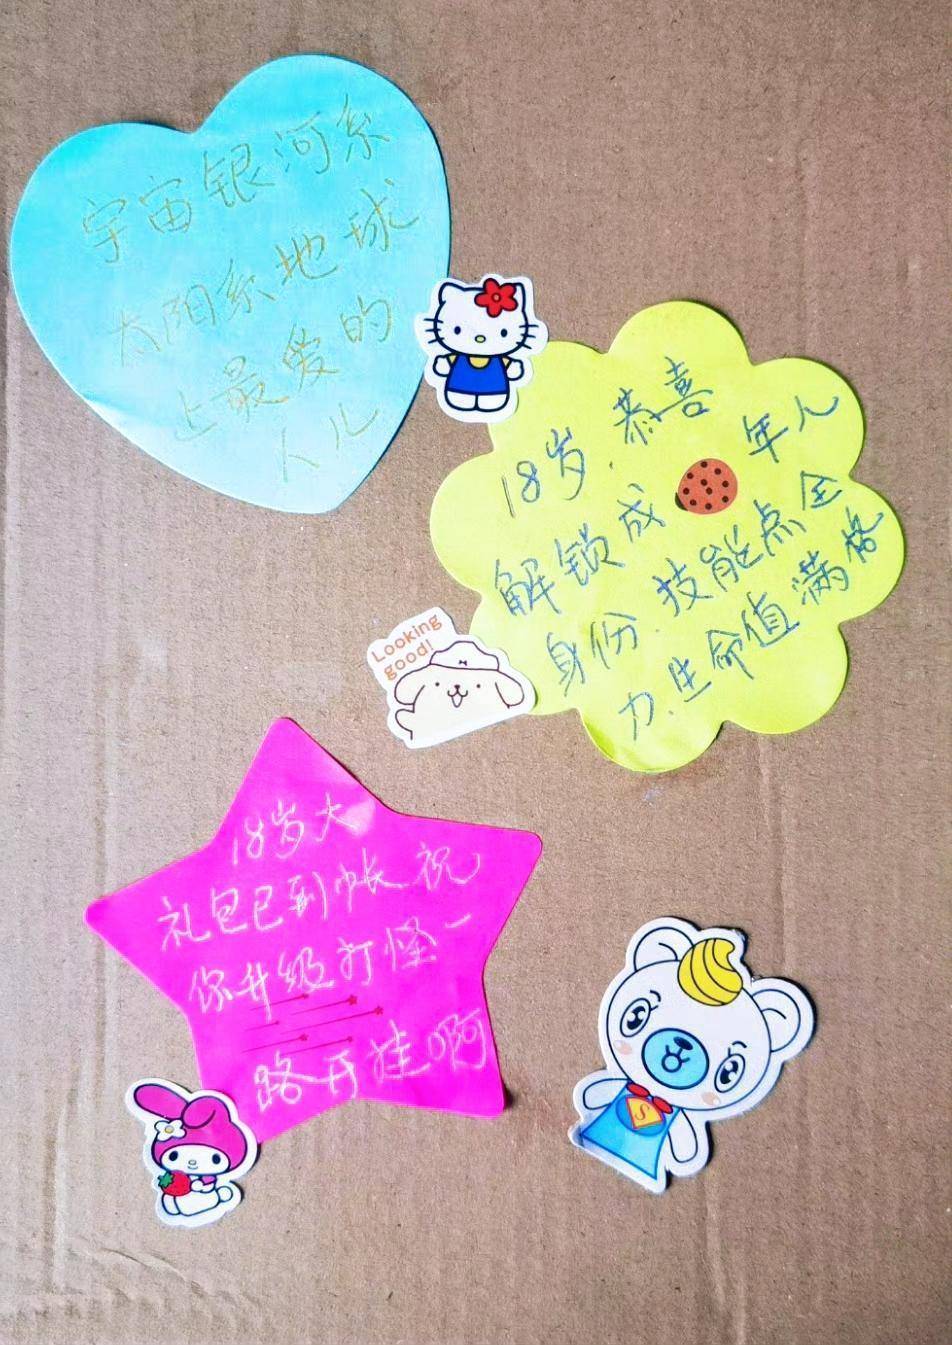 宇宙银河系
太阳系地球
上最爱的
人儿
18岁.恭喜
解锁成年人
身份.技能点全
力.生命值满格
Looking
good!
18岁大
礼包已到帐祝
你升级打怪一
路开挂啊
S